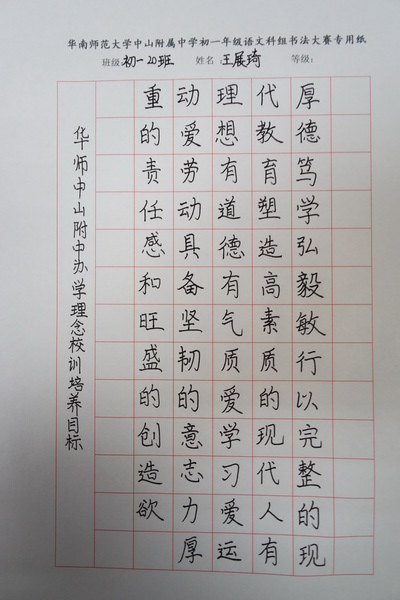 华南师范大学中山附属中学初一年级语文科组书法大赛专用纸
班级:初一20班 姓名:王展琦 等级:
厚德笃学弘毅敏行以完整的现
代教育塑造高素质的现代人有
理想有道德有气质爱学习爱运
动爱劳动具备坚韧的意志力厚
重的责任感和旺盛的创造欲
华师中山附中办学理念校训培养目标